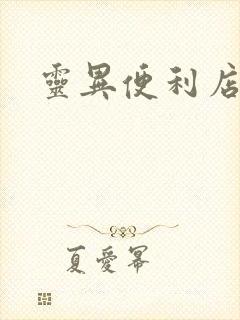 靈異便利店
夏愛冪